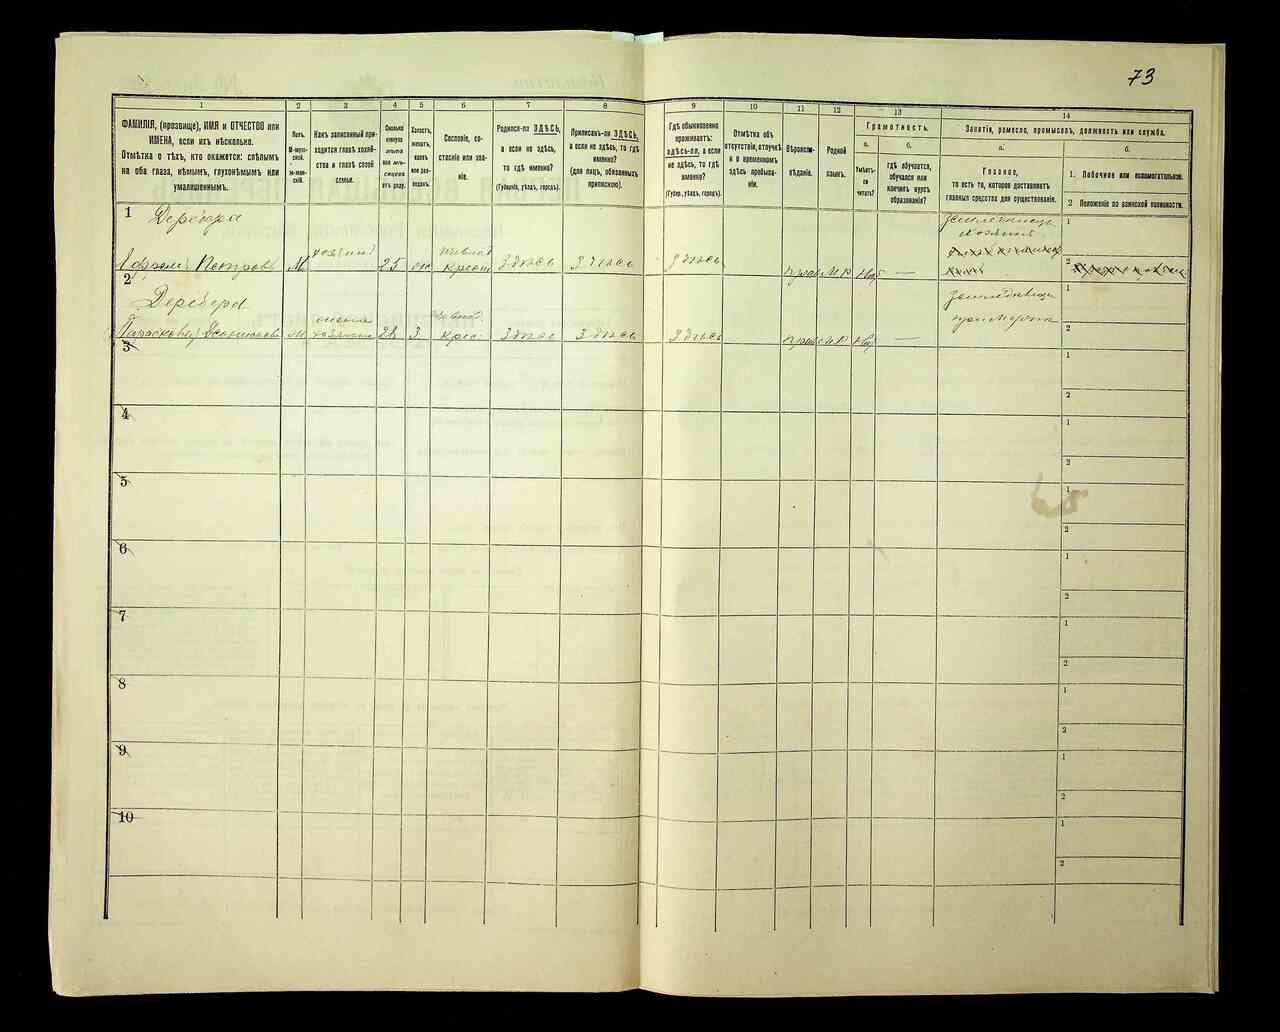 73
1 2 3 4 5 6 7 8 9 10 11 12 13 14
ФАМИЛІЯ, (прозвище), ИМЯ и ОТЧЕСТВО или
ИМЕНА, если ихъ нѣсколько.
Отмѣтка о тѣхъ, кто окажется: слѣпымъ
на оба глаза, нѣмымъ, глухонѣмымъ или
умалишеннымъ.
Полъ.
М-мужской.
Ж-женскій.
Какъ записанный приходится главѣ хозяйства и главѣ своей
семьи.
Сколько
минуло
лѣтъ
или мѣсяцевъ
отъ роду.
Холостъ,
женатъ,
вдовъ
или разведенъ.
Сословіе, состояніе или званіе.
Родился-ли ЗДѢСЬ,
а если не здѣсь,
то гдѣ именно?
(Губернія, уѣздъ, городъ).
Приписанъ-ли ЗДѢСЬ,
а если не здѣсь, то гдѣ
именно?
(для лицъ, обязанныхъ
припискою).
Гдѣ обыкновенно
проживаетъ:
здѣсь-ли, а если
не здѣсь, то гдѣ
именно?
(Губер., уѣздъ, городъ).
Отмѣтка объ
отсутствіи, отлучкѣ
и о временномъ
здѣсь пребываніи.
Вѣроисповѣданіе.
Родной
языкъ.
Грамотность.
а.
Умѣетъ-ли
читать?
б.
гдѣ обучается,
обучался или
кончилъ курсъ
образованія?
Занятія, ремесло, промыселъ, должность или служба.
а.
Главное,
то есть то, которое доставляетъ
главныя средства для существованія.
б.
1. Побочное или вспомогательное.
2 Положеніе по воинской повинности.
1 Деребера
земледѣлецъ
хозяинъ
Ефремъ Петровъ М хозяинъ 25 ж крест Здѣсь Здѣсь Здѣсь прав М Р —
2
Деребера
Параскевія ж жена
хозяина 28 З крес. Здѣсь Здѣсь Здѣсь прав М Р —
3
4
5
6
7
8
9
10
1
2
1
2
1
2
1
2
1
2
1
2
1
2
1
2
1
2
1
2